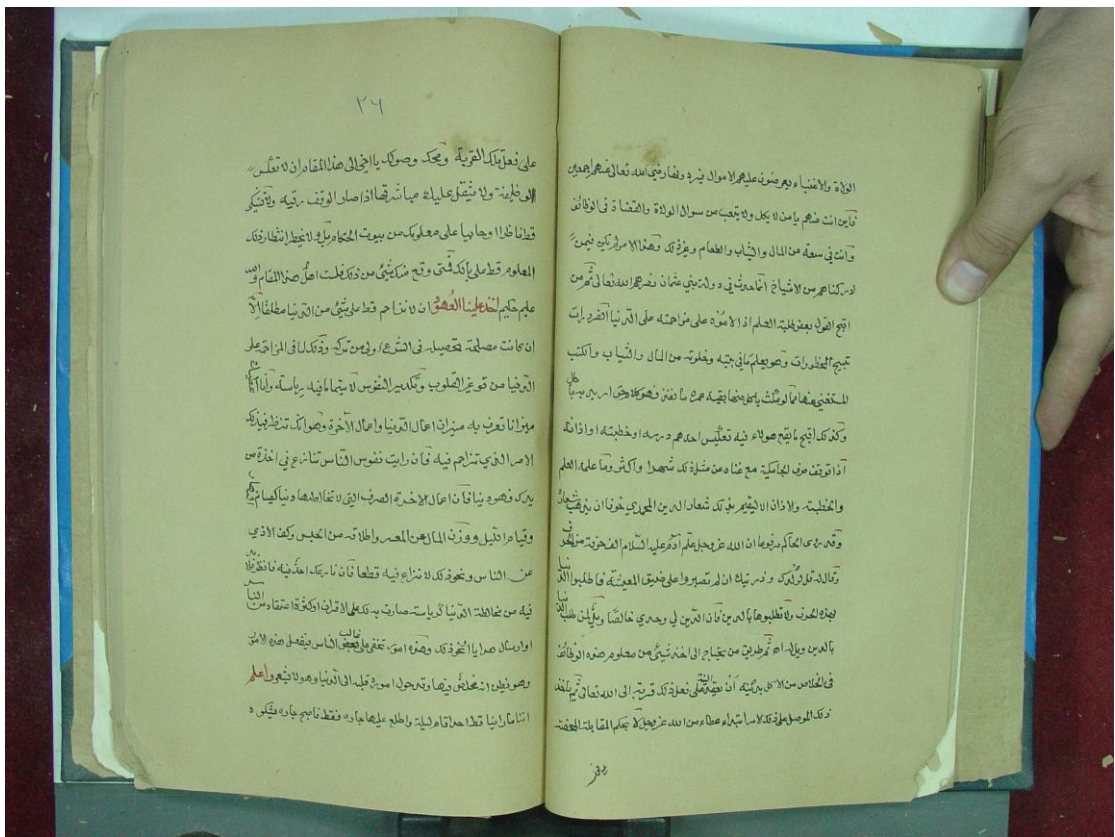 الولاة والاغنياء يعرضون عليهم الاموال فيردونها رضي الله تعالى عنهم اجمعين
فاين انت منهم يا من لا يكل ولا يتعب من سوال الولاة والقضاة في الوظائف
وانت في سعة من المال والثياب والطعام وغير ذلك وهذا الامر لم يكن فيمن
ادركناهم من الاشياخ انما حدث في دولة بني عثمان نصرهم الله تعالى ثم من
اقبح القول بعض طلبة العلم اذ الاموه على مزاحمته على الدنيا الضرورات
تبيح المحظورات وهو يعلم ما في بيته وخلوته من المال والثياب والكتب
المستغني عنها مما لو مكث ياكل منها بقية عمره ما نفد فهو كلام حق اريد به باطل
وكذلك اقبح ما يقع هولاء فيه تعليس احدهم درسه او خطبته او اذانه
اذا توقف صرف الجامكية مع غناه عن مثل ذلك شهرا واكثر وما علمه العلم
والخطبة والاذان الا ليقيم بذلك شعار الدين المحمدي خوفا ان يذهب شعاره
وقد روى الحاكم مرفوعا ان الله عز وجل علم آدم عليه السلام الف حرفة من الحرف
وقال له قل لولدك وذريتك ان لم تصبروا على ضيق المعيشة فاطلبوا الدنيا
بهذه الحرف ولا تطلبوها بالدين فان الدين لي وحدي خالصا ويل لمن طلب الدنيا
بالدين ويل له اه ثم طريق من يحتاج الى اخذ شيئ من معلوم هذه الوظائف
في الخلاص من الاكل بدينه ان يعقد النية على فعل ذلك قربة الى الله تعالى ثم ياخذ
ذلك المرصد على ذلك الامر ابتداء عطاء من الله عز وجل لا بحكم المقابلة المحضة
على فعل
٢٦
على فعل تلك القربة ومحك وصولك يا اخي الى هذا المقام ان لا تعلس
الوظيفة ولا يثقل عليك مباشرتها اذا صار الوقف رقبه ولا تشكر
قط ناظرا وجابيا على معلومك من بيوت الحكام بل ولا يخطر انتظار ذلك
المعلوم قط على بالك فمتى وقع منك شيئ من ذلك فلست اهل هذا المقام والله
عليم حكيم اخذ علينا العهود ان لا نزاحم قط على شيئ من الدنيا مطلقا الا
ان كانت مصلحة تحصيله في الشرع اولى من تركه وذلك لما في المزاحمة على
الدنيا من توغير القلوب وتكدير النفوس لا سيما ما فيه رياسة
ميزانا تعرف به ميزان اعمال الدنيا واعمال الآخرة وهو انك تنظر في ذلك
الامر الذي تزاحم فيه فان رايت نفوس الناس تنازع في اخذه من
يدك فهو دنيا فان اعمال الاخرة الصرف التي لا تخالطها دنيا كصيام
وقيام الليل ووزن المال عن المعسر واطلاقه من الحبس وكف الاذى
عن الناس ونحو ذلك لا نزاع فيه قطعا فان نازعك احد فيه فانظر فلا بد
فيه من مخالطة الدنيا كرياسة صارت به تلك على الاقران او كثرة اعتقاد من الناس
او ارسال هدايا او نحو ذلك وهذه امور تخفى على غالب الناس فيفعل هذه الامور
وهو يظن انه مخلص فيها وقد حول اموره قلبه الى الدنيا وهو لا يشعر واعلم
اننا ما راينا قط احدا قام ليلة واطلع عليها جاره فقط فاصبح جاره يشكوه